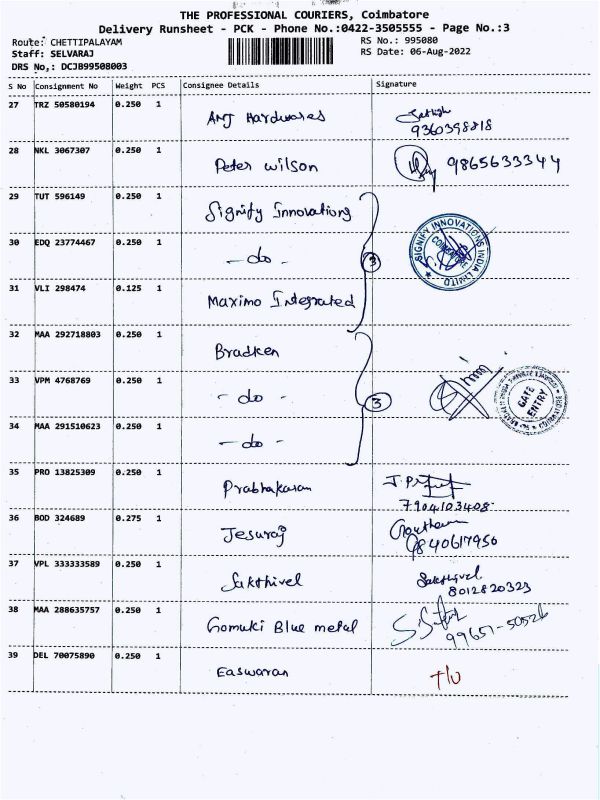 THE PROFESSIONAL COURIERS, Coimbatore
Delivery Runsheet - PCK - Phone No.:0422-3505555 - Page No.:3
Route: CHETTIPALAYAM
Staff: SELVARAJ
DRS No,: DCJB99508003
RS No.: 995080
RS Date: 06-Aug-2022
S No Consignment No Weight PCS Consignee Details Signature
27 TRZ 50580194 0.250 1 AMJ Hardwares Sathish
9360398818
28 NKL 3067307 0.250 1 Peter Wilson 9865633344
29 TUT 596149 0.250 1 Signify Innovations
30 EDQ 23774467 0.250 1 - do - 3
SIGNIFY INNOVATIONS INDIA LIMITED
COIMBATORE
31 VLI 298474 0.125 1 Maximo Integrated
32 MAA 292718803 0.250 1 Bradken
33 VPM 4768769 0.250 1 - do - 3
GATE ENTRY
34 MAA 291510623 0.250 1 - do -
35 PRO 13825309 0.250 1 Prabhakaran
7904103408
36 BOD 324689 0.275 1 Jesuraj Gowtham
9840617950
37 VPL 333333589 0.250 1 Sakthivel Sakthivel
8012820323
38 MAA 288635757 0.250 1 Gomuki Blue metal
99651-50526
39 DEL 70075890 0.250 1 Easwaran T/U